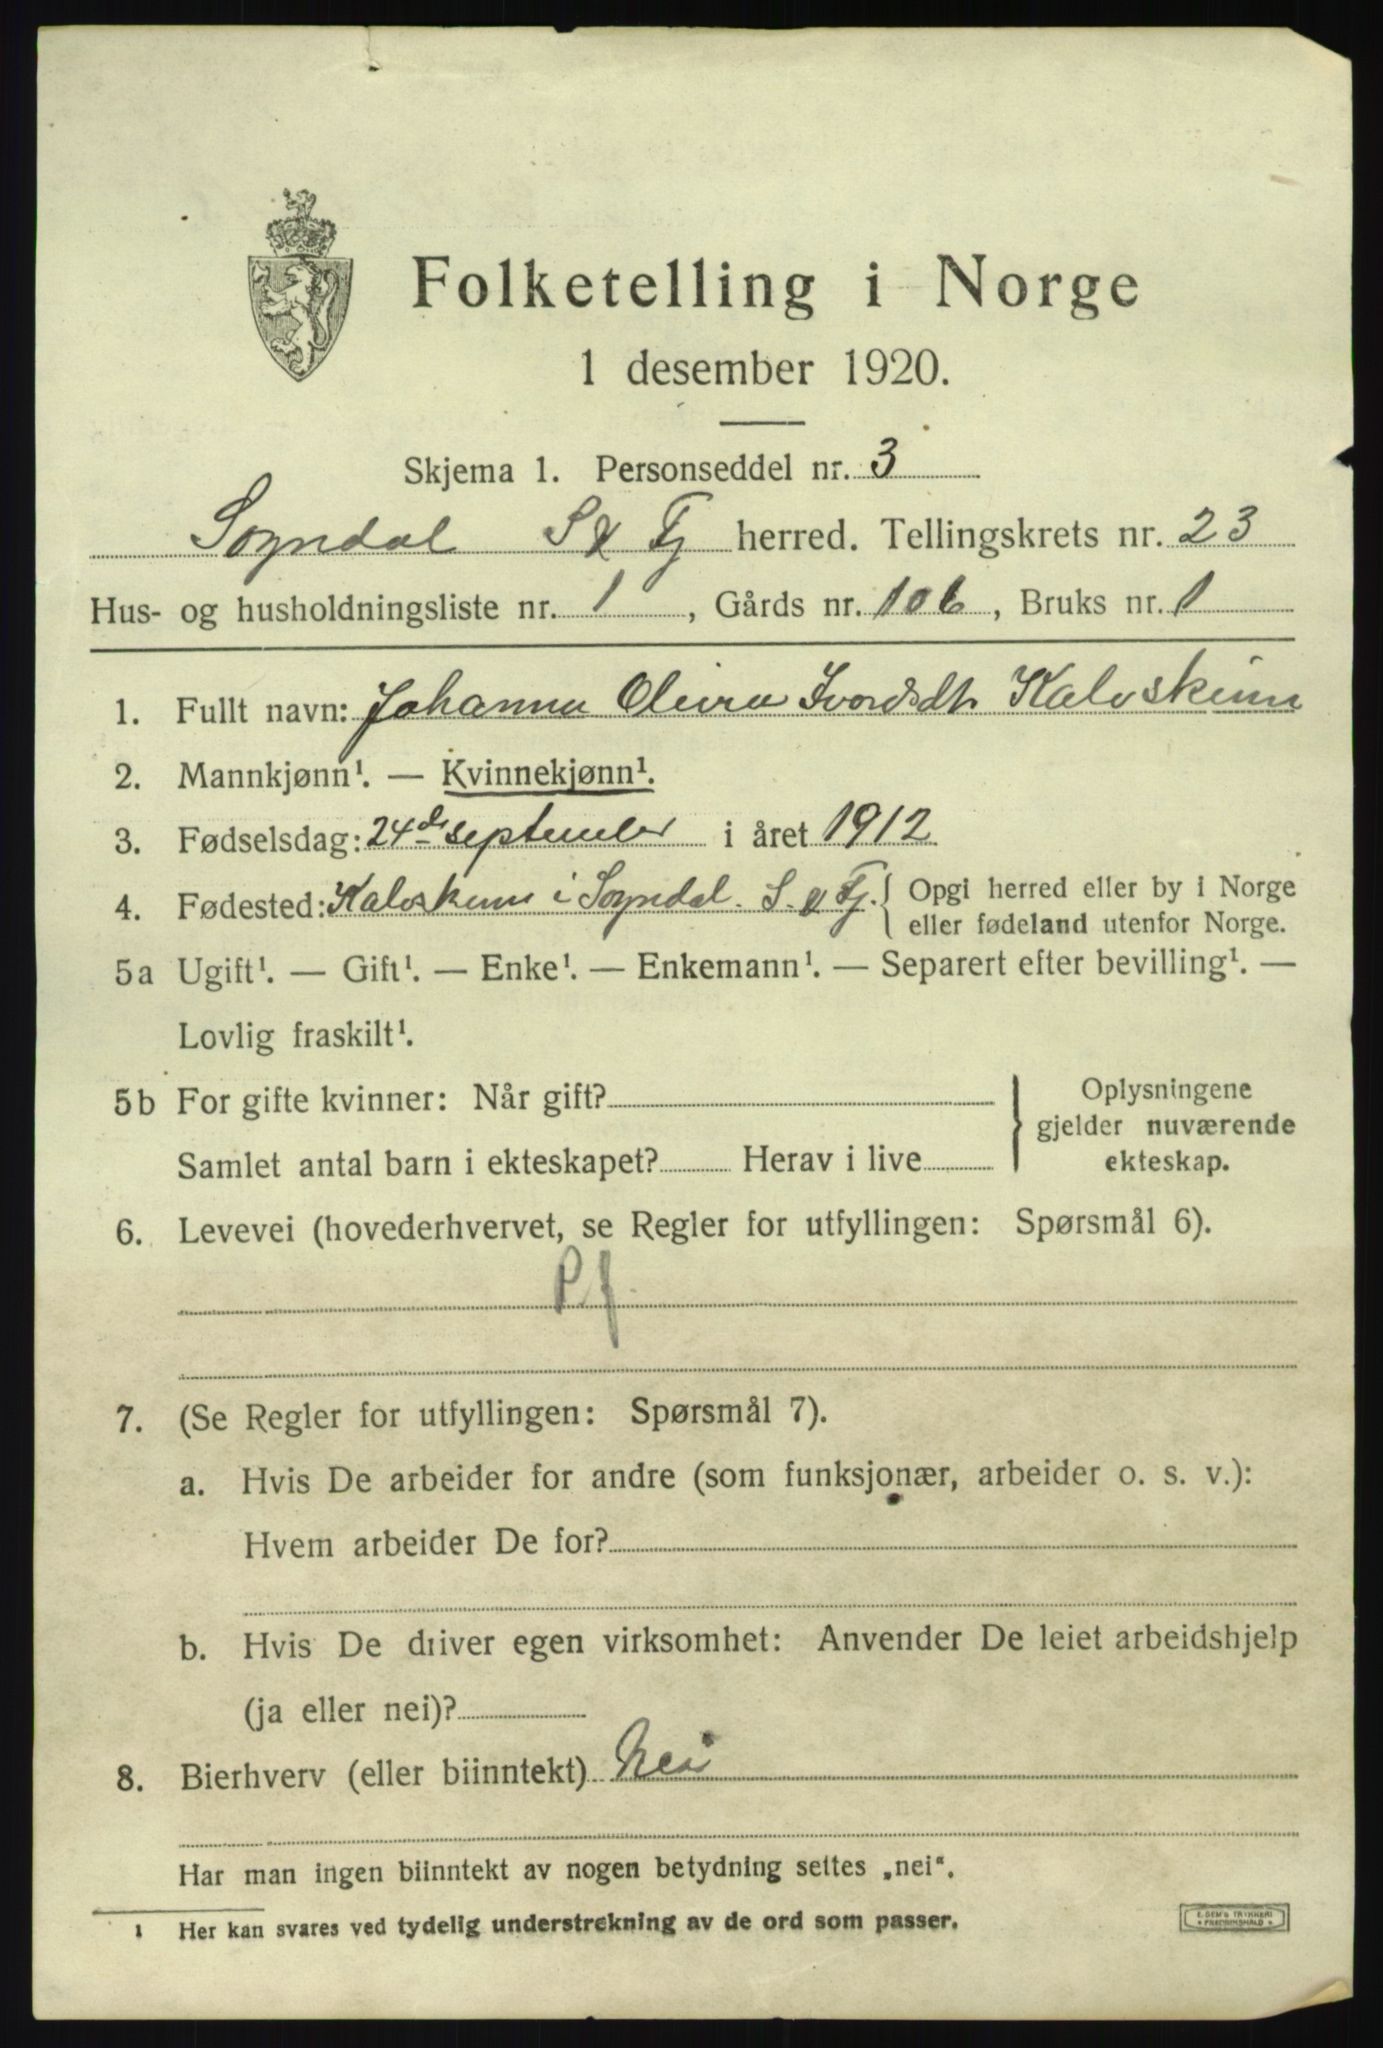 Folketelling i Norge
1 desember 1920.
Skjema 1. Personseddel nr. 3
Sogndal S & Fj herred. Tellingskrets nr. 23
Hus- og husholdningsliste nr. 1, Gårds nr. 106, Bruks nr. 1
1. Fullt navn: Johanna Kalvskinn
2. Mannkjønn¹. — Kvinnekjønn¹.
3. Fødselsdag: 24de september i året 1912
4. Fødested: Kalvskinn i Sogndal. S. & Fj. { Opgi herred eller by i Norge
eller fødeland utenfor Norge.
5a Ugift¹. — Gift¹. — Enke¹. — Enkemann¹. — Separert efter bevilling¹. —
Lovlig fraskilt¹.
5b For gifte kvinner: Når gift?
Samlet antal barn i ekteskapet? Herav i live
Oplysningene
gjelder nuværende
ekteskap.
6. Levevei (hovederhvervet, se Regler for utfyllingen: Spørsmål 6).
P f.
7. (Se Regler for utfyllingen: Spørsmål 7).
a. Hvis De arbeider for andre (som funksjonær, arbeider o. s. v.):
Hvem arbeider De for?
b. Hvis De driver egen virksomhet: Anvender De leiet arbeidshjelp
(ja eller nei)?
8. Bierhverv (eller biinntekt) Nei
Har man ingen biinntekt av nogen betydning settes „nei“.
1 Her kan svares ved tydelig understrekning av de ord som passer.
E. SEM'S TRYKKERI
FREDRIKSHALD